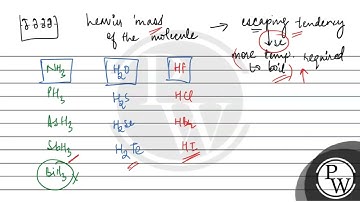 heavier mass of the molecule → escaping tendency
↓se
(more temp. required to boil) ↑
NH₃ H₂O HF
PH₃ H₂S HCl
AsH₃ H₂Se HBr
SbH₃ H₂Te HI
BiH₃ ×
P
W
PW